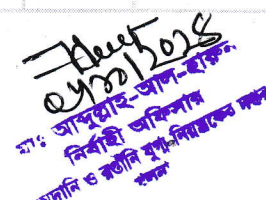 ০৭/১১/২০২৪
মোঃ আব্দুল্লাহ-আল-হারুন
নির্বাহী অফিসার
আমদানি ও রপ্তানি যুগ্ম-নিয়ন্ত্রকের দপ্তর